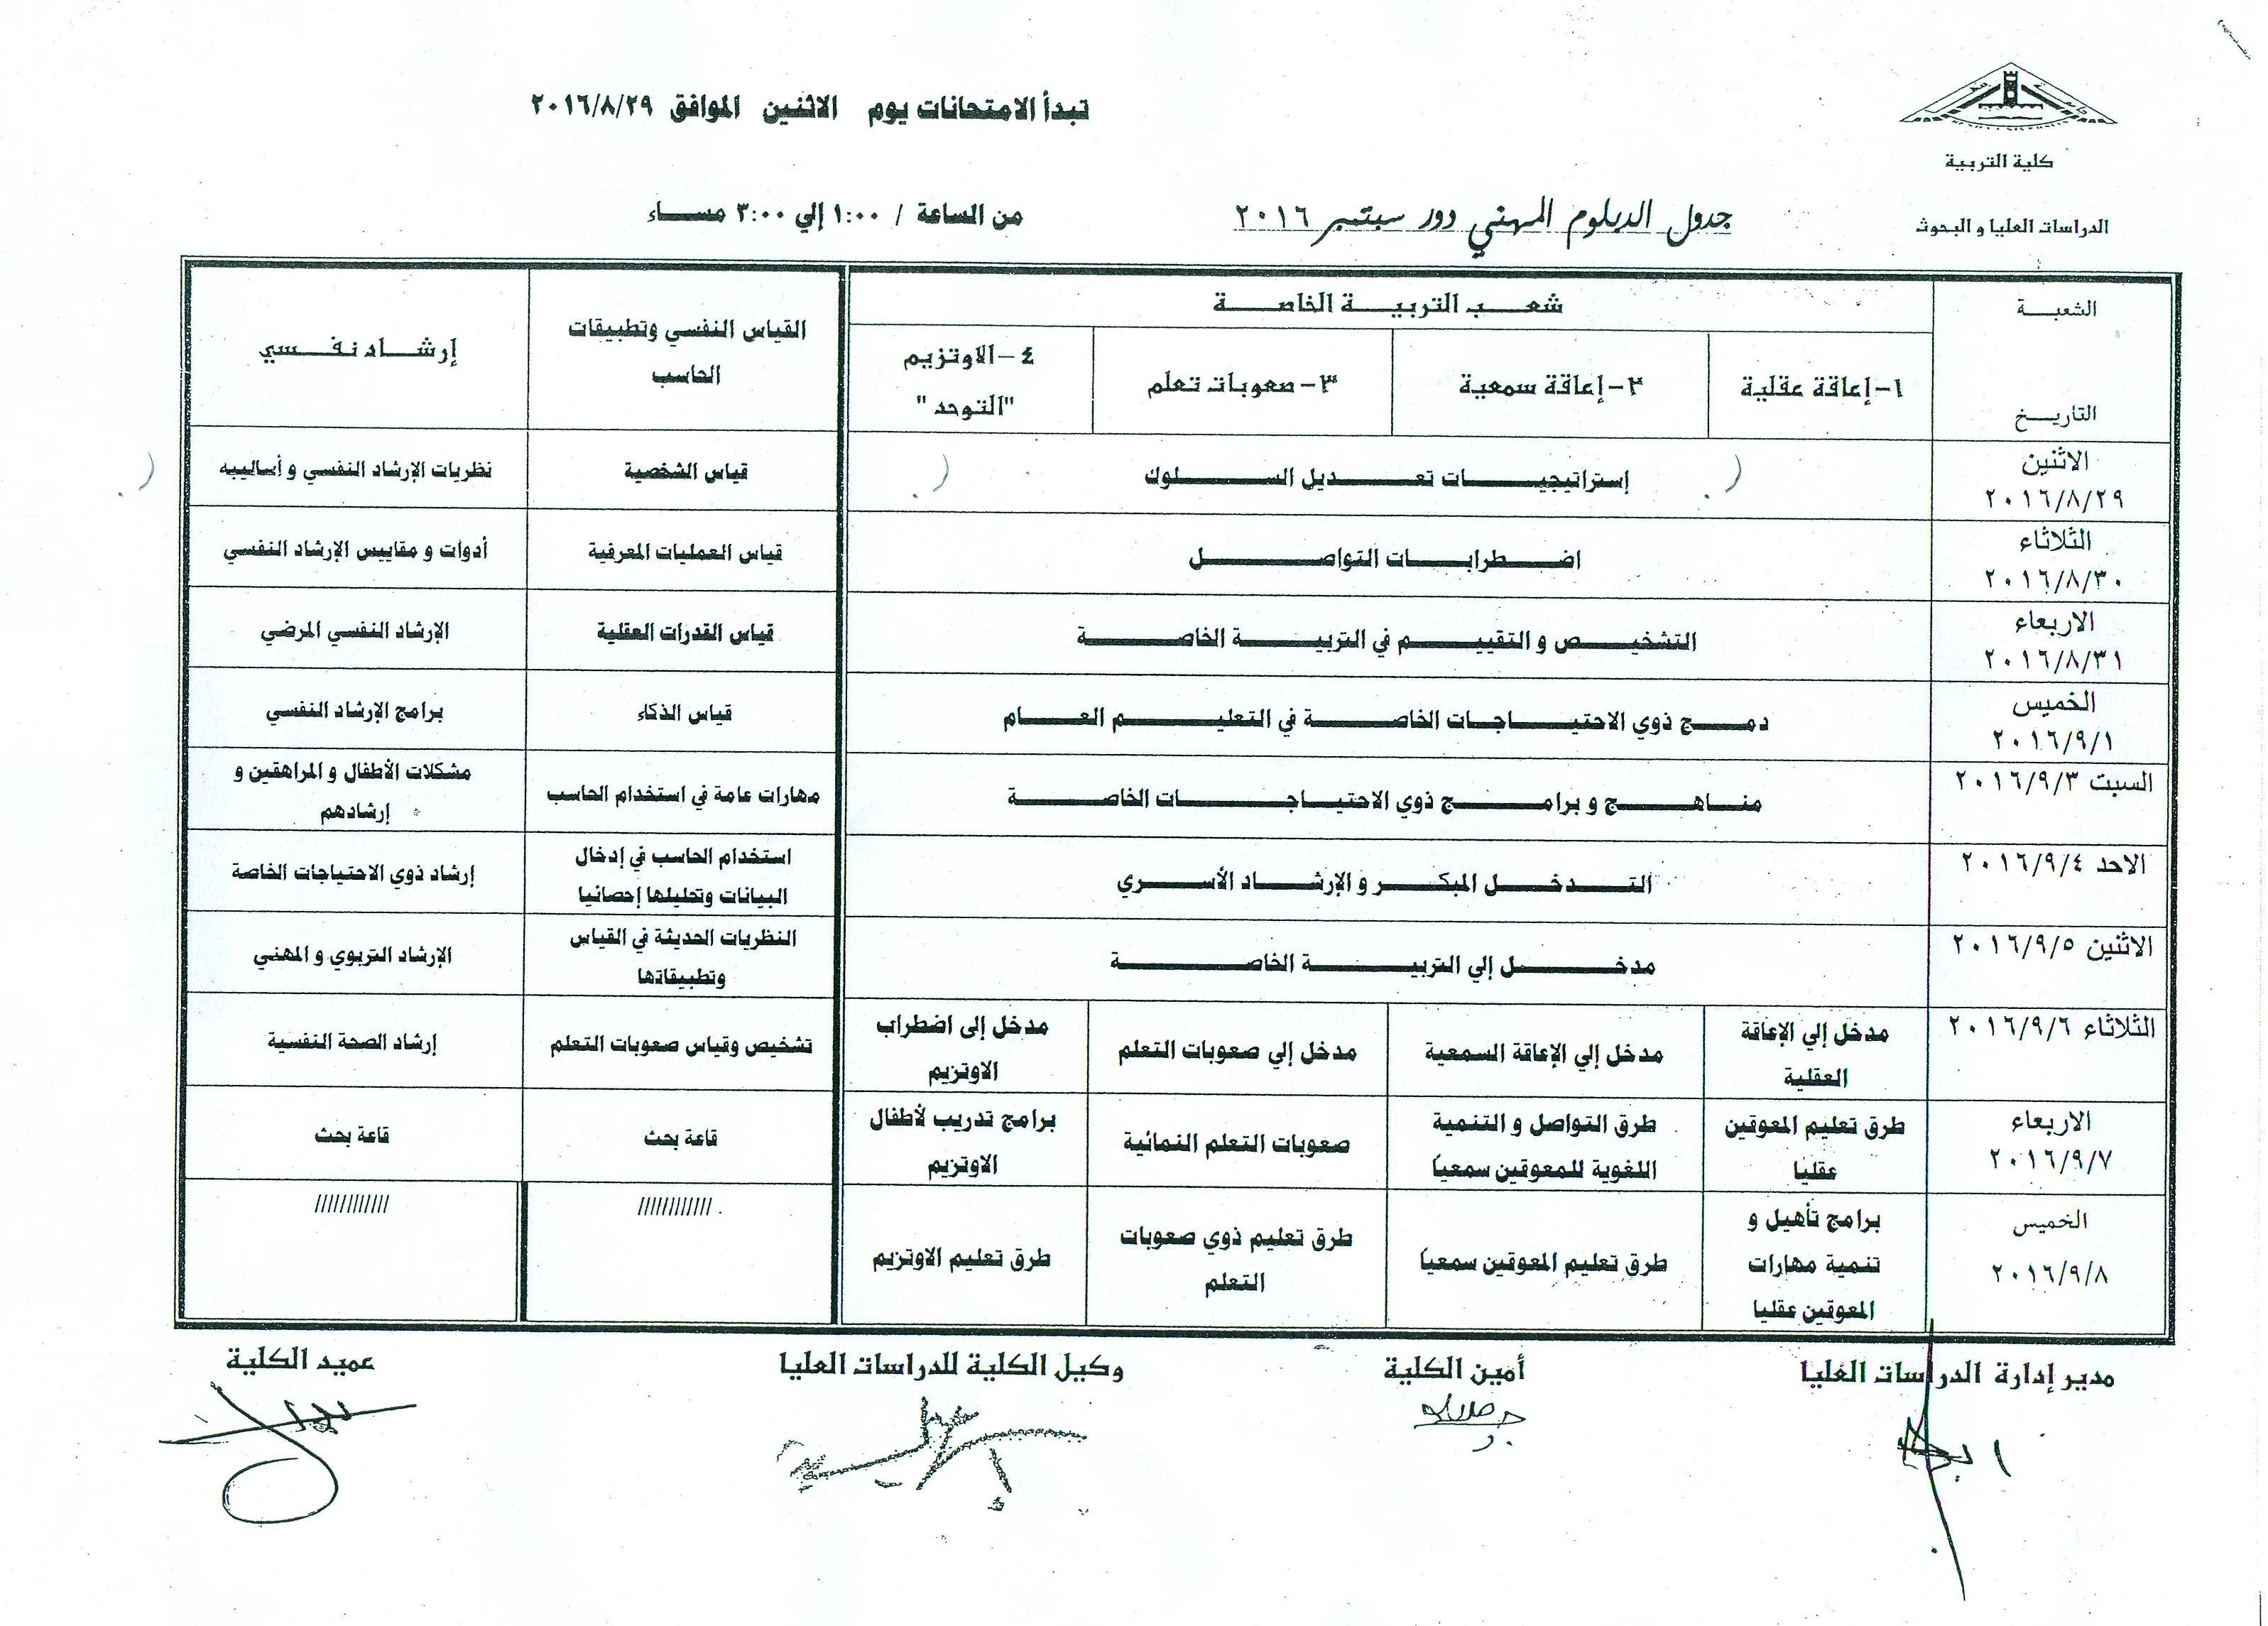 تبدأ الامتحانات يوم الاثنين الموافق ٢٠١٦/٨/٢٩
كلية التربية
الدراسات العليا و البحوث
جدول الدبلوم المهني دور سبتمبر ٢٠١٦
من الساعة / ١:٠٠ إلي ٣:٠٠ مساء
الشعبة
التاريخ
شعب التربية الخاصة
١- إعاقة عقلية
٢- إعاقة سمعية
٣- صعوبات تعلم
٤- الاوتزيم
"التوحد"
القياس النفسي وتطبيقات
الحاسب
إرشاد نفسي
الاثنين
٢٠١٦/٨/٢٩
إستراتيجيات تعديل السلوك
قياس الشخصية
نظريات الإرشاد النفسي و أساليبه
الثلاثاء
٢٠١٦/٨/٣٠
اضطرابات التواصل
قياس العمليات المعرفية
أدوات و مقاييس الإرشاد النفسي
الاربعاء
٢٠١٦/٨/٣١
التشخيص و التقييم في التربية الخاصة
قياس القدرات العقلية
الإرشاد النفسي المرضي
الخميس
٢٠١٦/٩/١
دمج ذوي الاحتياجات الخاصة في التعليم العام
قياس الذكاء
برامج الإرشاد النفسي
السبت ٢٠١٦/٩/٣
مناهج و برامج ذوي الاحتياجات الخاصة
مهارات عامة في استخدام الحاسب
مشكلات الأطفال و المراهقين و
إرشادهم
الاحد ٢٠١٦/٩/٤
التدخل المبكر و الإرشاد الأسري
استخدام الحاسب في إدخال
البيانات وتحليلها إحصائيا
إرشاد ذوي الاحتياجات الخاصة
الاثنين ٢٠١٦/٩/٥
مدخل إلي التربية الخاصة
النظريات الحديثة في القياس
وتطبيقاتها
الإرشاد التربوي و المهني
الثلاثاء ٢٠١٦/٩/٦
مدخل إلي الإعاقة
العقلية
مدخل إلي الإعاقة السمعية
مدخل إلي صعوبات التعلم
مدخل إلى اضطراب
الاوتزيم
تشخيص وقياس صعوبات التعلم
إرشاد الصحة النفسية
الاربعاء
٢٠١٦/٩/٧
طرق تعليم المعوقين
عقليا
طرق التواصل و التنمية
اللغوية للمعوقين سمعيا
صعوبات التعلم النمائية
برامج تدريب لأطفال
الاوتزيم
قاعة بحث
قاعة بحث
الخميس
٢٠١٦/٩/٨
برامج تأهيل و
تنمية مهارات
المعوقين عقليا
طرق تعليم المعوقين سمعيا
طرق تعليم ذوي صعوبات
التعلم
طرق تعليم الاوتزيم
////////////
////////////
مدير إدارة الدراسات العليا
أمين الكلية
وكيل الكلية للدراسات العليا
عميد الكلية